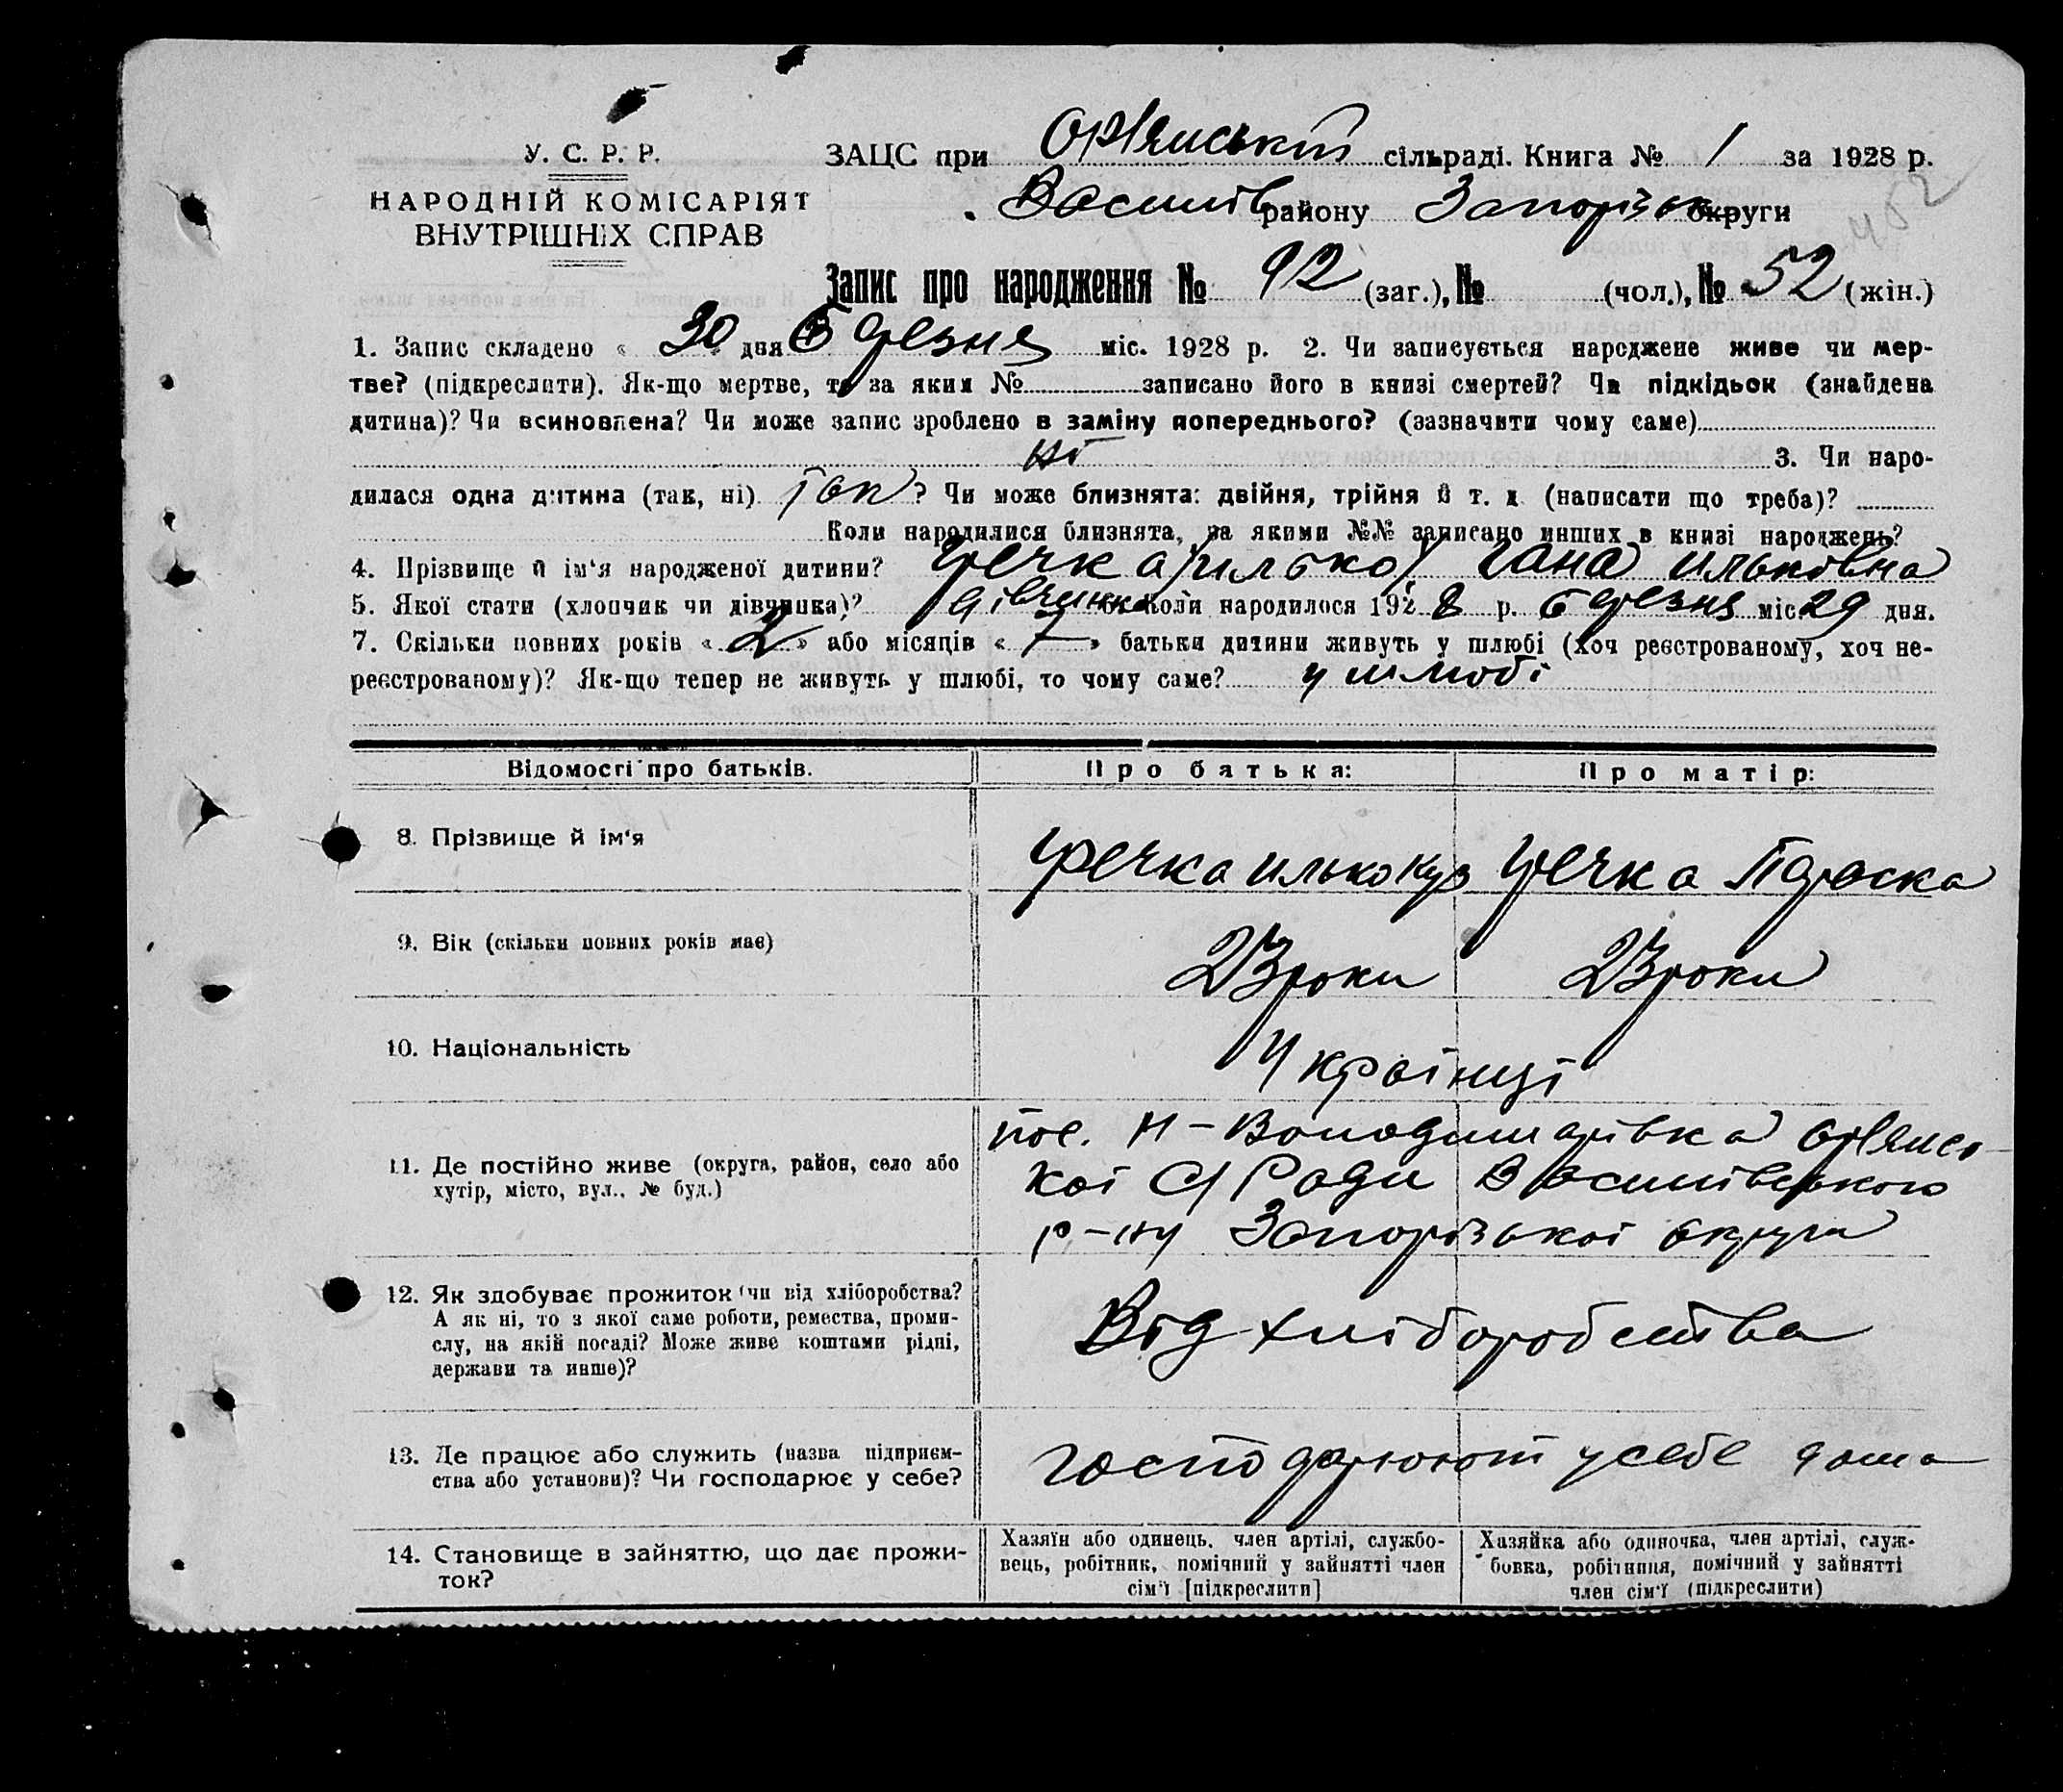 У. С. Р. Р.
НАРОДНІЙ КОМІСАРІЯТ
ВНУТРІШНІХ СПРАВ
ЗАЦС при Орʼянській сільраді. Книга № 1 за 1928 р.
Василів району Запорізьк округи
Запис про народження № 92 (заг.), № (чол.), № 52 (жін.)
1. Запис складено « 30 » дня Березня міс. 1928 р. 2. Чи записується народжене живе чи мер-
тве? (підкреслити). Як-що мертве, то за яким № записано його в книзі смертей? Чи підкідьок (знайдена
дитина)? Чи всиновлена? Чи може запис зроблено в заміну попереднього? (зазначити чому саме)
ні 3. Чи наро-
дилася одна дитина (так, ні) Так? Чи може близнята: двійня, трійня й т. д. (написати що треба)?
Коли народилися близнята, за якими №№ записано инших в книзі народжень?
4. Прізвище й ім‘я народженої дитини? Гречка /Илько/ Гана Ильковна
5. Якої стати (хлопчик чи дівчинка)? дівчинка Коли народилося 1928 р. березня міс 29 дня.
7. Скільки повних років « 2 » або місяців « — » батьки дитини живуть у шлюбі (хоч реєстрованому, хоч не-
реєстрованому)? Як-що тепер не живуть у шлюбі, то чому саме? у шлюбі
Відомості про батьків. Про батька: Про матір:
8. Прізвище й ім‘я Гречка Илько Куз Гречка Параска
9. Вік (скільки повних років має) 23 роки 23 роки
10. Національність Українці
11. Де постійно живе (округа, район, село або
хутір, місто, вул., № буд.)
пос. Н-Володимирівка Орʼянсь-
кої С/Ради Василівського
р-ну Запорізької округи
12. Як здобуває прожиток (чи від хліборобства?
А як ні, то з якої саме роботи, ремества, проми-
слу, на якій посаді? Може живе коштами рідні,
держави та инше)?
Від хліборобства
13. Де працює або служить (назва підприєм-
ства або установи)? Чи господарює у себе?
господарюют у себе дома
14. Становище в зайняттю, що дає прожи-
ток?
Хазяїн або одинець, член артілі, службо-
вець, робітник, помічний у зайнятті член
сім‘ї [підкреслити]
Хазяйка або одиночка, член артілі, служ-
бовка, робітниця, помічний у зайнятті
член сім‘ї (підкреслити)